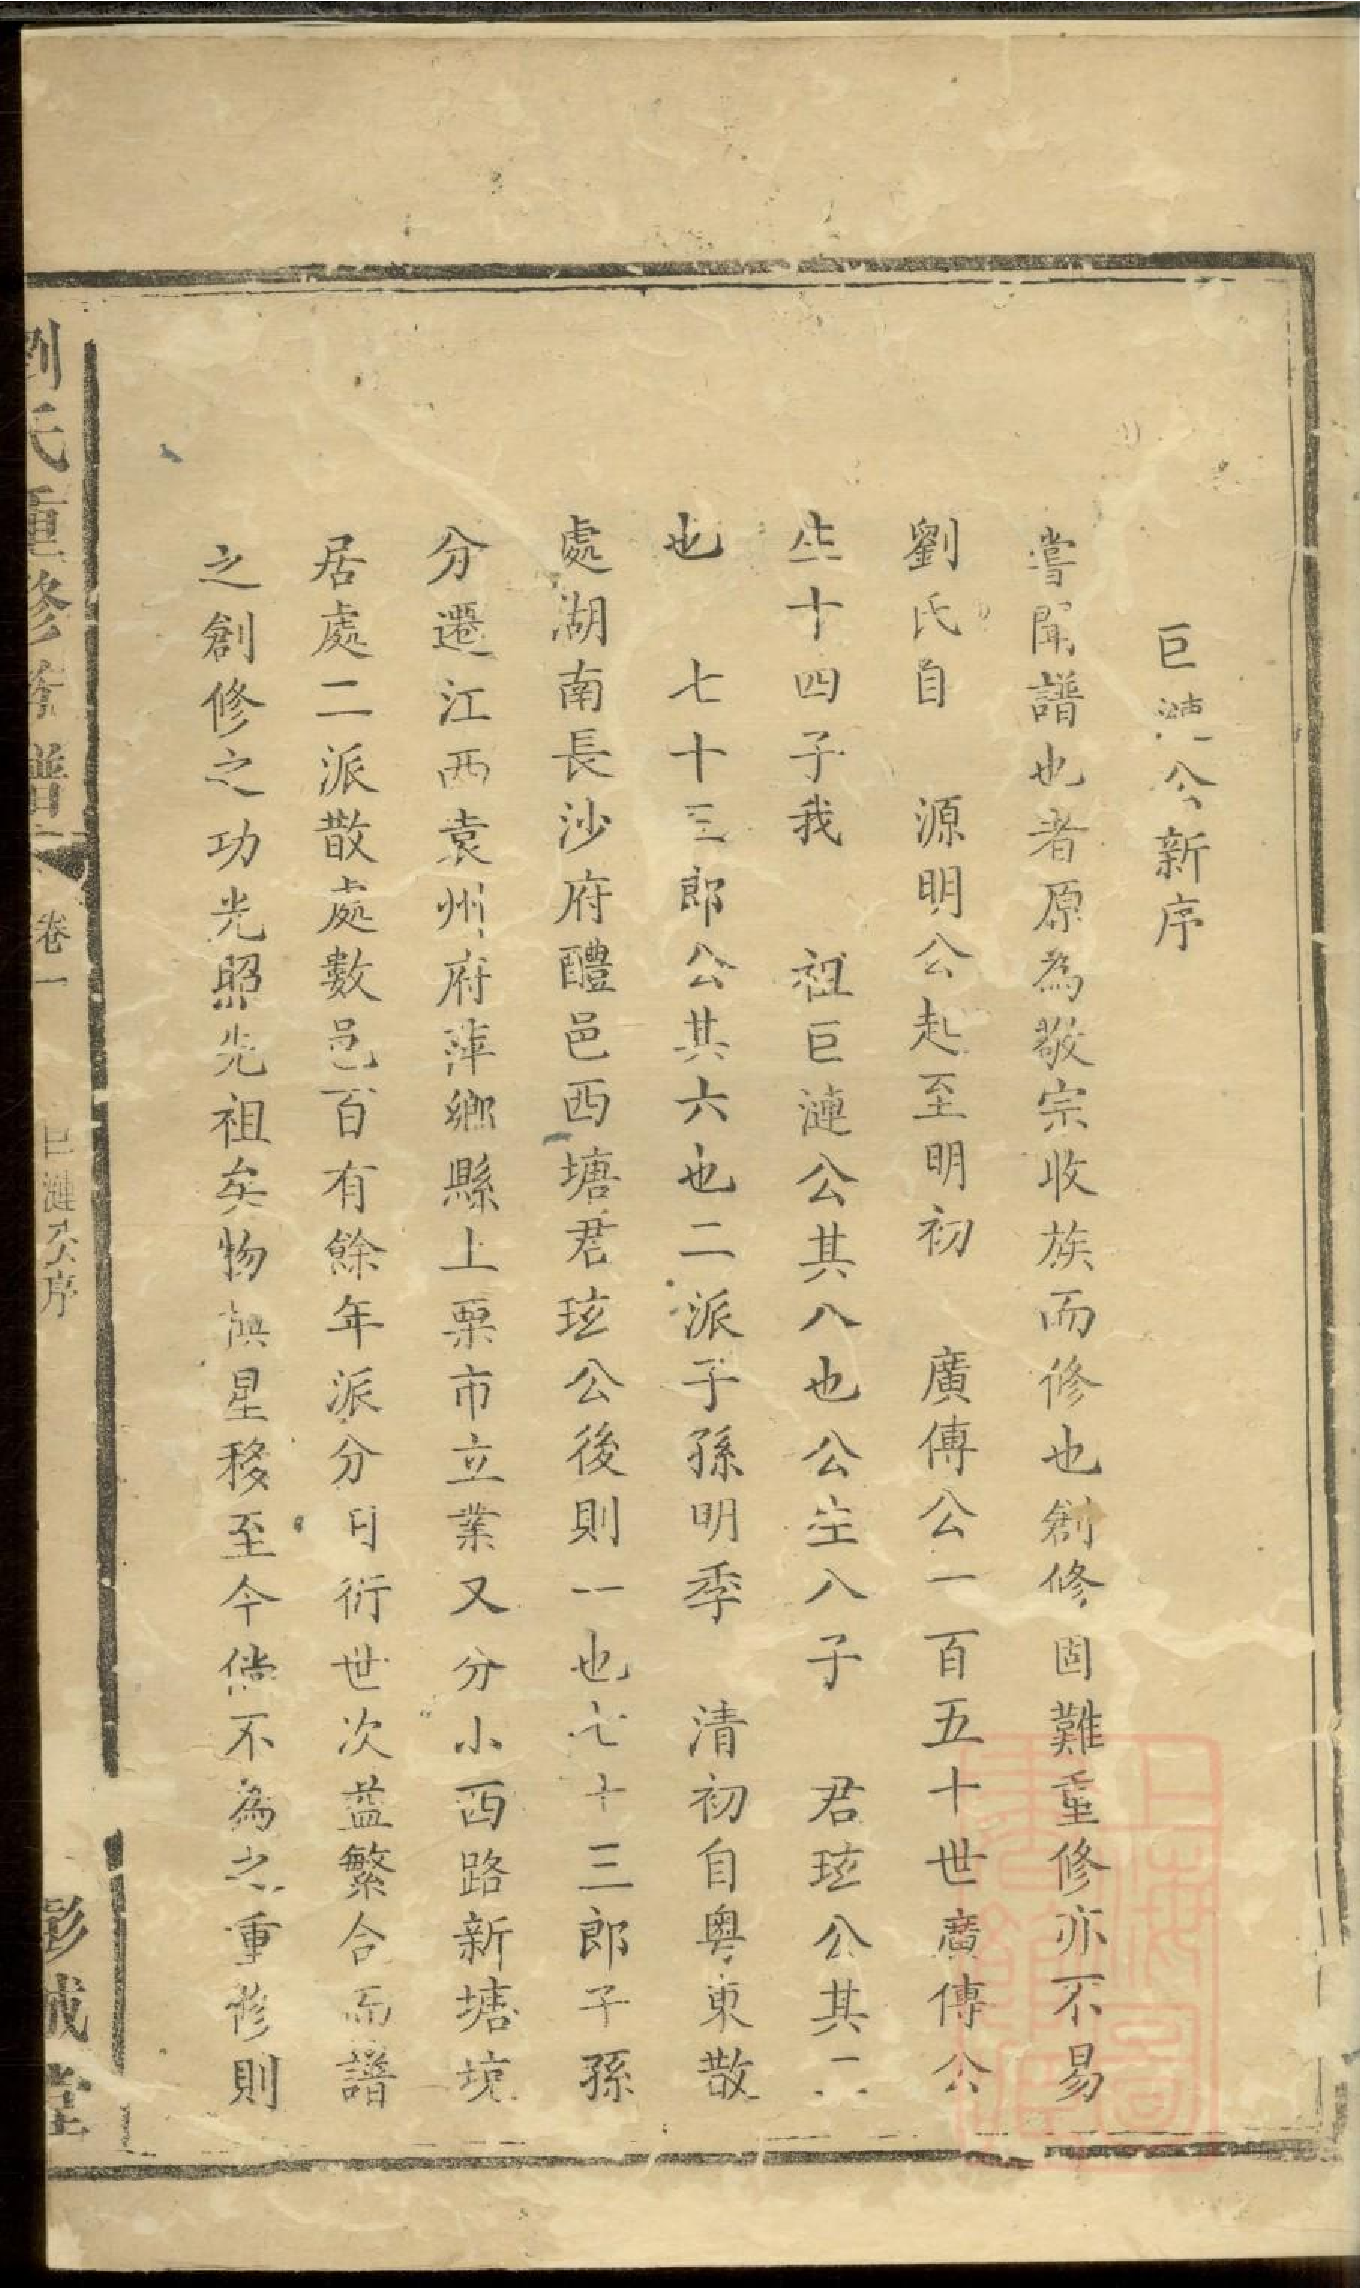 巨漣公新序
嘗聞譜也者原為敬宗收族而修也創修固難重修亦不易
劉氏自　源明公起至明初　廣傳公一百五十世廣傳公
生十四子我　祖巨漣公其八也公生八子　君玹公其二
也　七十三郎公其六也二派子孫明季　清初自粵東散
處湖南長沙府醴邑西塘君玹公後則一也七十三郎子孫
分遷江西袁州府萍鄉縣上栗市立業又分小西路新塘坑
居處二派散處數邑百有餘年派分日衍世次益繁合而譜
之創修之功光照先祖矣物換星移至今倘不為之重修則
劉氏重修族譜
卷一
巨漣公序
彭城堂
上海圖書館藏